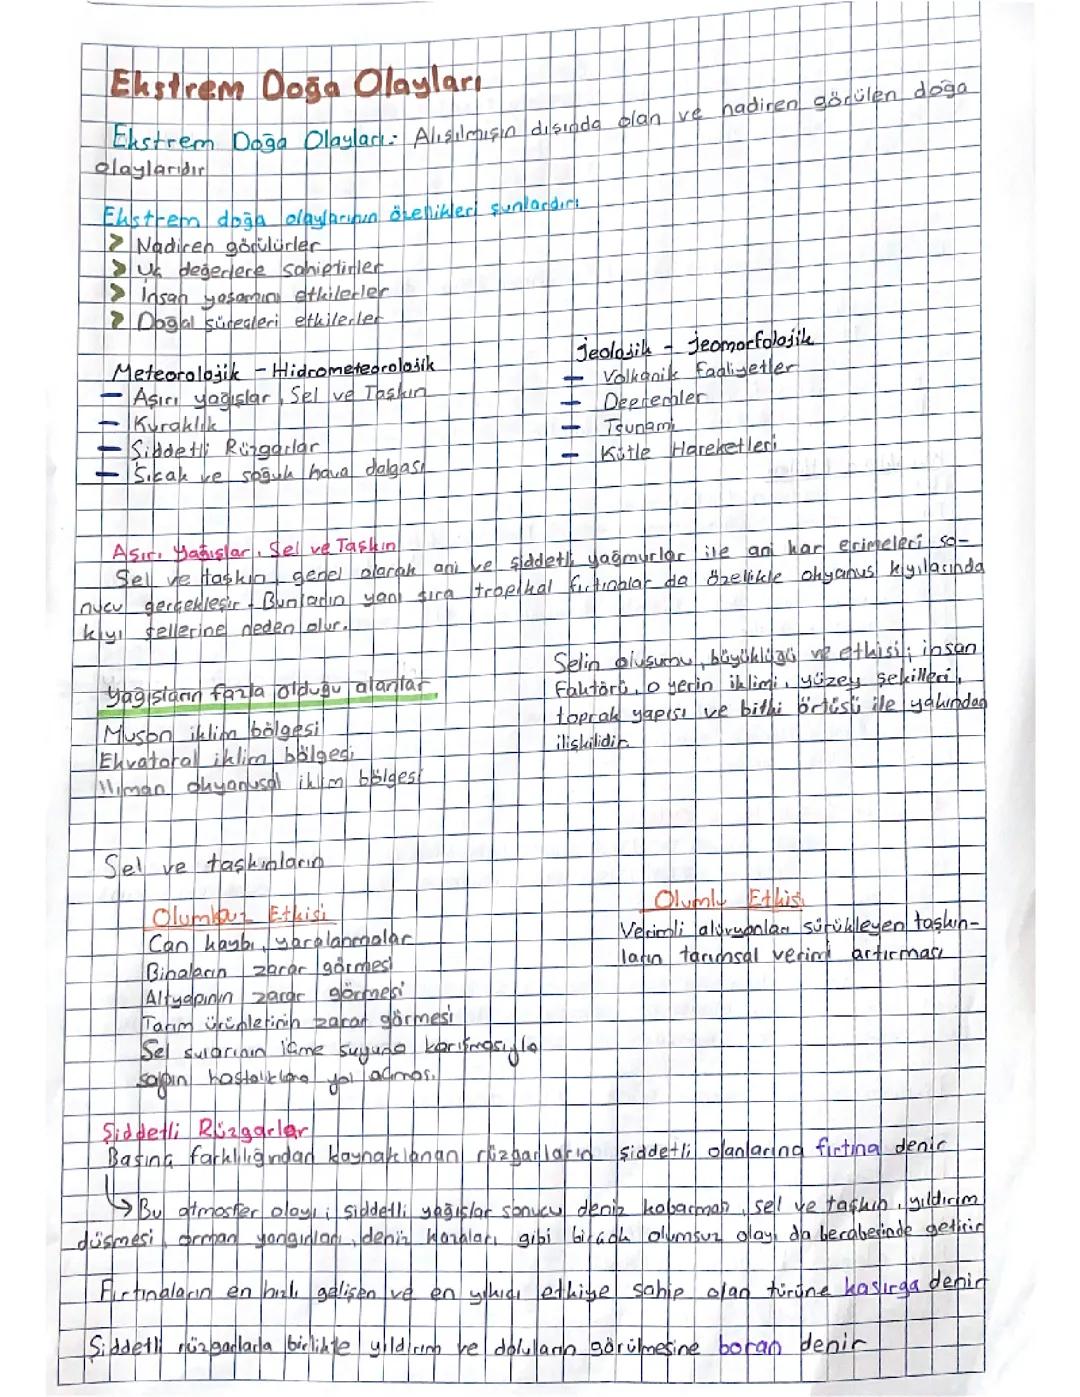 Ekstrem Doğa Olayları
Ekstrem Doğa Olayları: Alışılmışın dışında olan ve nadiren görülen doğa
olaylarıdır
Ekstrem doğa olaylarının özellikleri şunlardır:
> Nadiren görülürler
> Uç değerlere sahiptirler
> İnsan yaşamını etkilerler
> Doğal süreçleri etkilerler
Meteorolojik - Hidrometeorolojik
— Aşırı yağışlar, Sel ve Taşkın
— Kuraklık
— Şiddetli Rüzgarlar
— Sıcak ve soğuk hava dalgası
Jeolojik - Jeomorfolojik
— Volkanik Faaliyetler
— Depremler
— Tsunami
— Kütle Hareketleri
Aşırı Yağışlar, Sel ve Taşkın
Sel ve taşkın, genel olarak ani ve şiddetli yağmurlar ile ani kar erimeleri so-
nucu gerçekleşir. Bunların yanı sıra tropikal fırtınalar da özelikle okyanus kıyılasında
kıyı sellerine neden olur.
Yağışların fazla olduğu alanlar
Muson iklim bölgesi
Ekvatoral iklim bölgesi
Ilıman okyanusal iklim bölgesi
Selin oluşumu, büyüklüğü ve etkisi; insan
Faktörü, o yerin iklimi, yüzey şekilleri,
toprak yapısı ve bitki örtüsü ile yakından
ilişkilidir.
Sel ve taşkınların
Olumsuz Etkisi
Can kaybı, yaralanmalar
Binaların zarar görmesi
Altyapının zarar görmesi
Tarım ürünlerinin zarar görmesi
Sel sularının içme suyuna karışmasıyla
salgın hastalıklara yol açması
Olumlu Etkisi
Verimli alüvyonları sürükleyen taşkın-
ların tarımsal verimi artırması
Şiddetli Rüzgarlar
Basınç farklılığından kaynaklanan rüzgarların şiddetli olanlarına fırtına denir
↳ Bu atmosfer olayı; şiddetli yağışlar sonucu deniz kabarması, sel ve taşkın, yıldırım
düşmesi, orman yangınları, deniz kazaları gibi birçok olumsuz olayı da beraberinde getirir
Fırtınaların en hızlı gelişen ve en yıkıcı etkiye sahip olan türüne kasırga denir
Şiddetli rüzgarlarla birlikte yıldırım ve doluların görülmesine boran denir